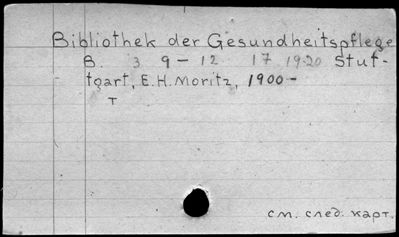 Bibliothek der Gesundheitspflege
B. 3 9 - 12 17 19.20 Stut-
tgart, E.H. Moritz, 1900 -
T
см. след. карт.